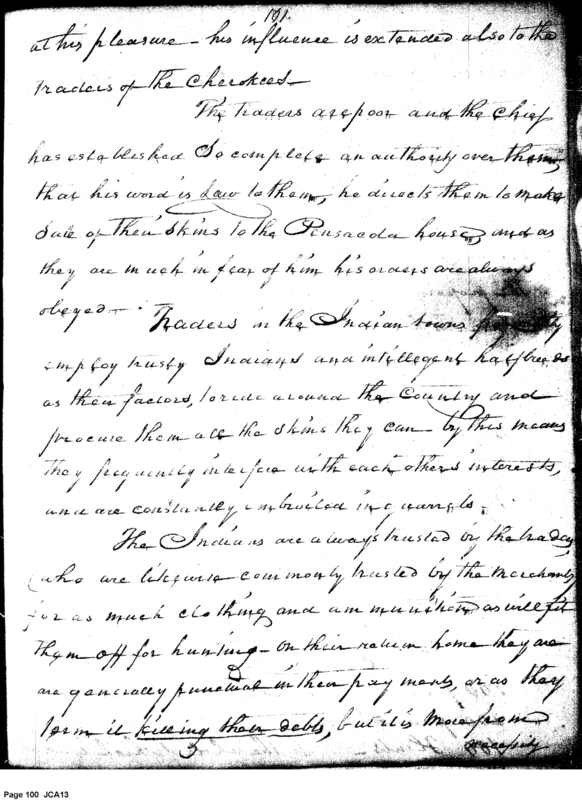 101.
at his pleasure - his influence is extended also to the
traders of the Cherokees -
The traders are poor and the chief
has established so complete an authority over them,
that his word is Law to them, he directs them to make
Sale of their Skins to the Pensacola house, and as
they are much in fear of him his orders are always
obeyed -
Traders in the Indian towns frequently
employ trusty Indians and intellegent half breeds
as their factors, to ride around the Country and
procure them all the skins they can - by this means
they frequently interfere with each others interests,
and are constantly embroiled in quarrels.
The Indians are always trusted by the traders,
who are likewise commonly trusted by the Merchants
for as much clothing and ammunition as will fit
them off for hunting - on their return home they are
are generally punctual in their payments, or as they
term it killing their debts, but it is more from
necessity
Page 100 JCA13